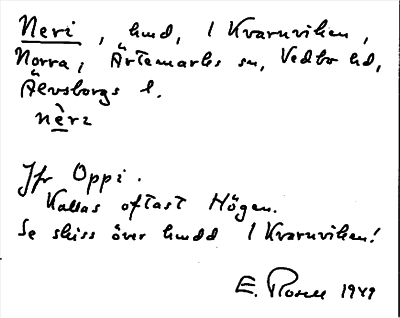 Neri, hmd, 1 Kvarnviken,
Norra, Ärtemarks sn, Vedbo hd,
Älvsborgs l.
nèri
Jfr Oppi.
Kallas oftast Högen.
Se skiss över hmdd 1 Kvarnviken!
E. Rosell 1949